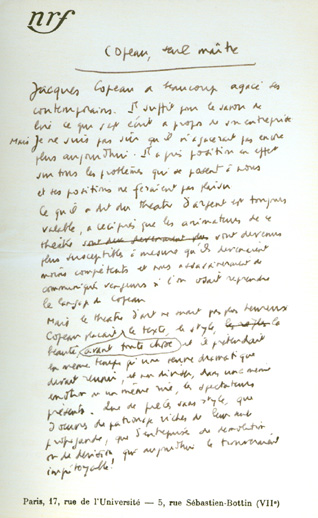 nrf
Copeau, seul maître
Jacques Copeau a beaucoup agacé ses
contemporains. Il suffit pour le savoir de
lire ce qui s'est écrit à propos de son entreprise
Mais je ne suis pas sûr qu'il n'agacerait pas encore
plus aujourd'hui. Il a pris position en effet
sur tous les problèmes qui se posent à nous
et ses positions ne feraient pas plaisir
Ce qu'il a dit du théâtre d'argent est toujours
valable, à ceci près que les animateurs de ce
théâtre sont devenus
plus susceptibles à mesure qu'ils devenaient
moins compétents et nous
communiqués vengeurs si l'on osait reprendre
le langage de Copeau
Mais le théâtre d'art ne vaut pas plus
Copeau plaçait le texte, le style,
beauté, avant toute chose et il prétendait
en même temps qu'une œuvre dramatique
devait réunir, et non diviser, dans une même
émotion ou un même rire, les spectateurs
présents. Que de pièces sans style, que
d'œuvres de patronage riches de leur seule
propagande, que d'entreprises de démolition
ou de division, qui aujourd'hui le trouveraient
impitoyable!
Paris, 17, rue de l'Université — 5, rue Sébastien-Bottin (VIIe)